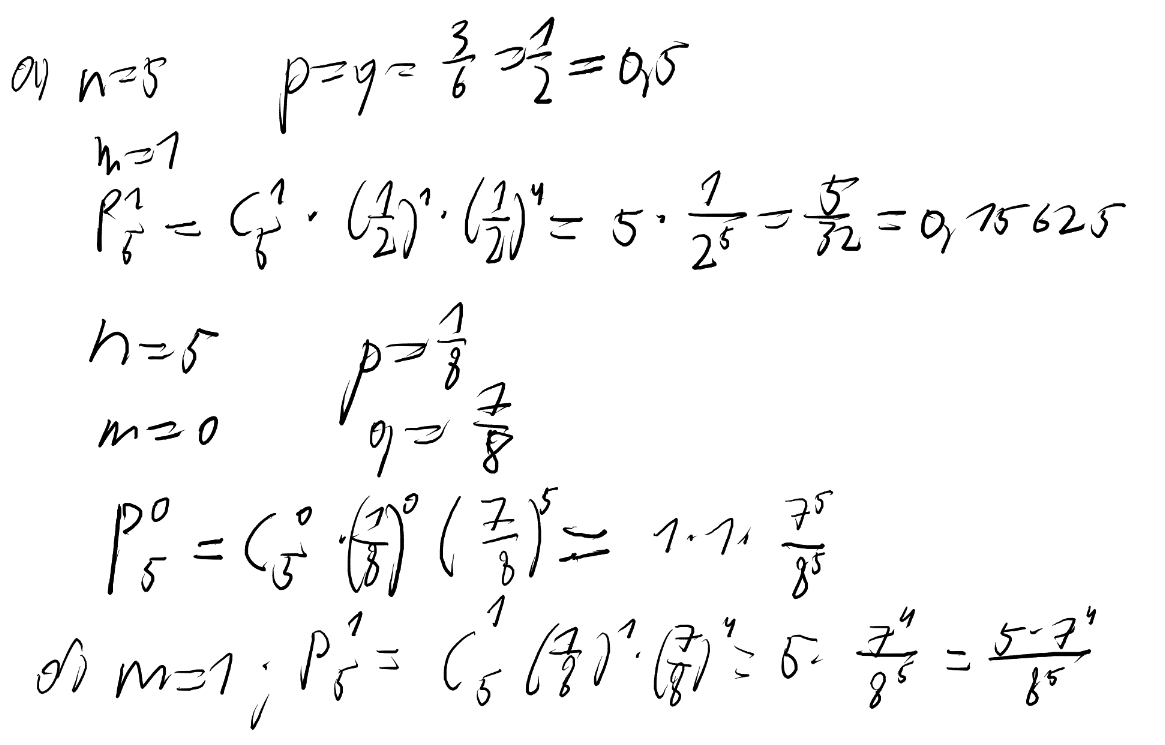 а) n=5 p=q= 3/6 = 1/2 = 0,5
m=1
P₅¹ = C₅¹ · (1/2)¹ · (1/2)⁴ = 5 · 1/2⁵ = 5/32 = 0,15625
n=5 p= 1/8
m=0 q= 7/8
P₅⁰ = C₅⁰ · (1/8)⁰ (7/8)⁵ = 1·1· 7⁵/8⁵
б) m=1; P₅¹ = C₅¹ (1/8)¹ · (7/8)⁴ = 5 · 7⁴/8⁵ = 5·7⁴/8⁵